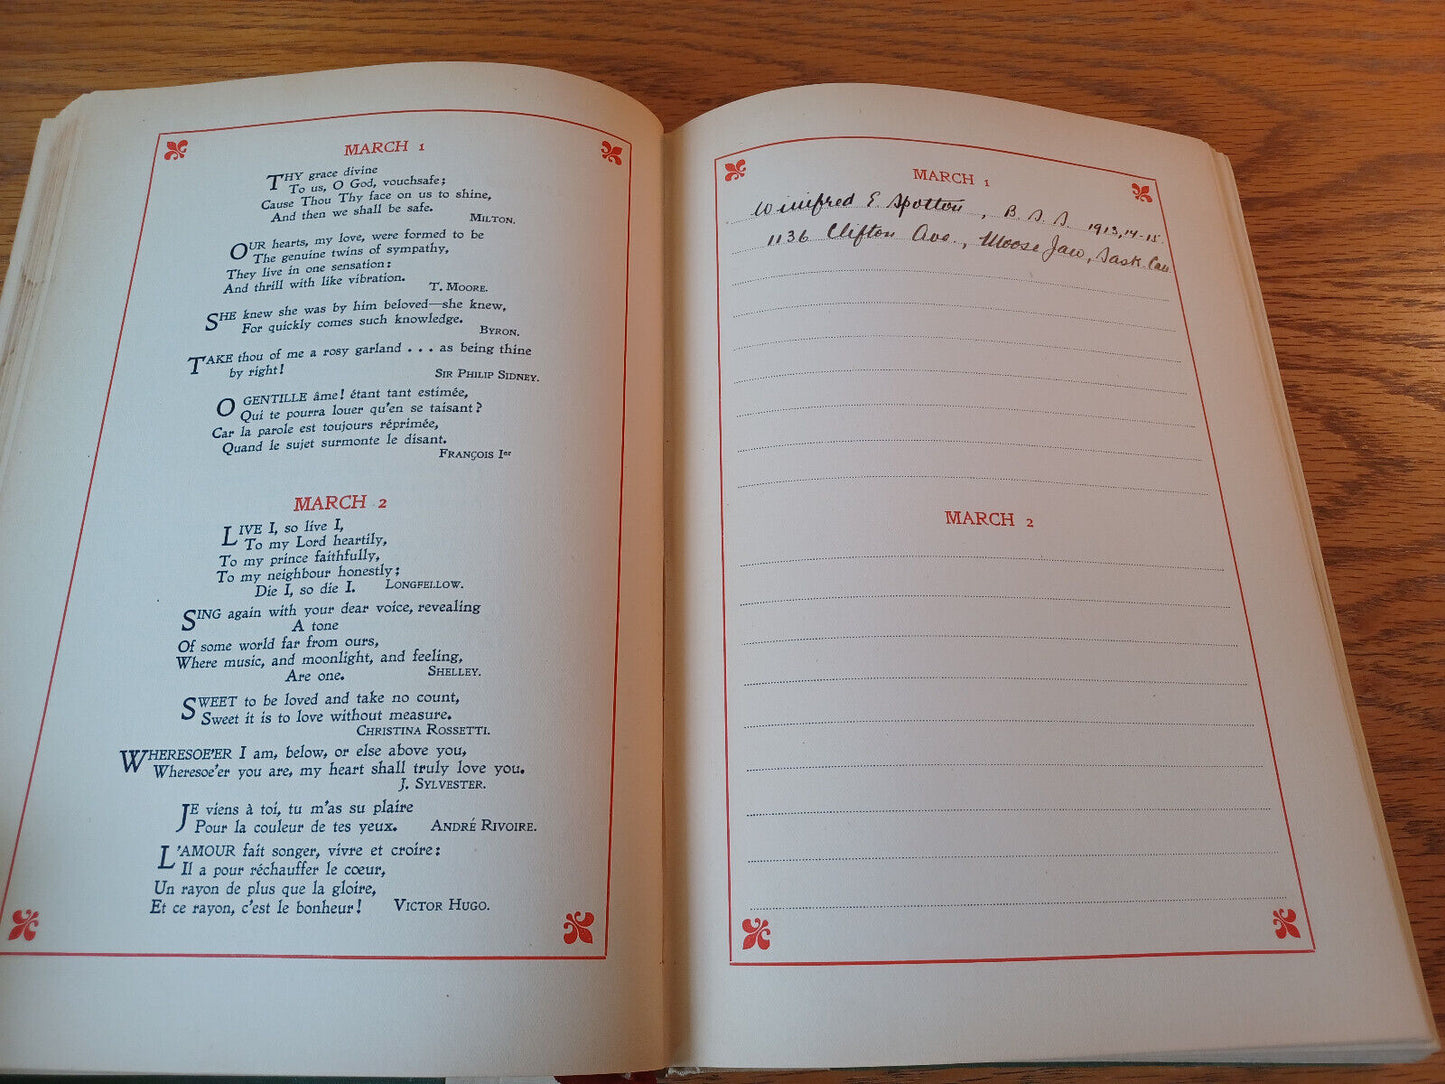 MARCH 1
THY grace divine
To us, O God, vouchsafe;
Cause Thou Thy face on us to shine,
And then we shall be safe.
MILTON.
OUR hearts, my love, were formed to be
The genuine twins of sympathy,
They live in one sensation:
And thrill with like vibration.
T. MOORE.
SHE knew she was by him beloved—she knew,
For quickly comes such knowledge.
BYRON.
TAKE thou of me a rosy garland . . . as being thine
by right!
SIR PHILIP SIDNEY.
O GENTILLE âme! étant tant estimée,
Qui te pourra louer qu'en se taisant?
Car la parole est toujours réprimée,
Quand le sujet surmonte le disant.
FRANÇOIS Ier
MARCH 2
LIVE I, so live I,
To my Lord heartily,
To my prince faithfully,
To my neighbour honestly;
Die I, so die I. LONGFELLOW.
SING again with your dear voice, revealing
A tone
Of some world far from ours,
Where music, and moonlight, and feeling,
Are one. SHELLEY.
SWEET to be loved and take no count,
Sweet it is to love without measure.
CHRISTINA ROSSETTI.
WHERESOE'ER I am, below, or else above you,
Wheresoe'er you are, my heart shall truly love you.
J. SYLVESTER.
JE viens à toi, tu m'as su plaire
Pour la couleur de tes yeux. ANDRÉ RIVOIRE.
L'AMOUR fait songer, vivre et croire:
Il a pour réchauffer le cœur,
Un rayon de plus que la gloire,
Et ce rayon, c'est le bonheur! VICTOR HUGO.
MARCH 1
Winifred E Spotton, B.S.S. 1913,14-15.
1136 Clifton Ave., Moose Jaw, Sask. Can
MARCH 2